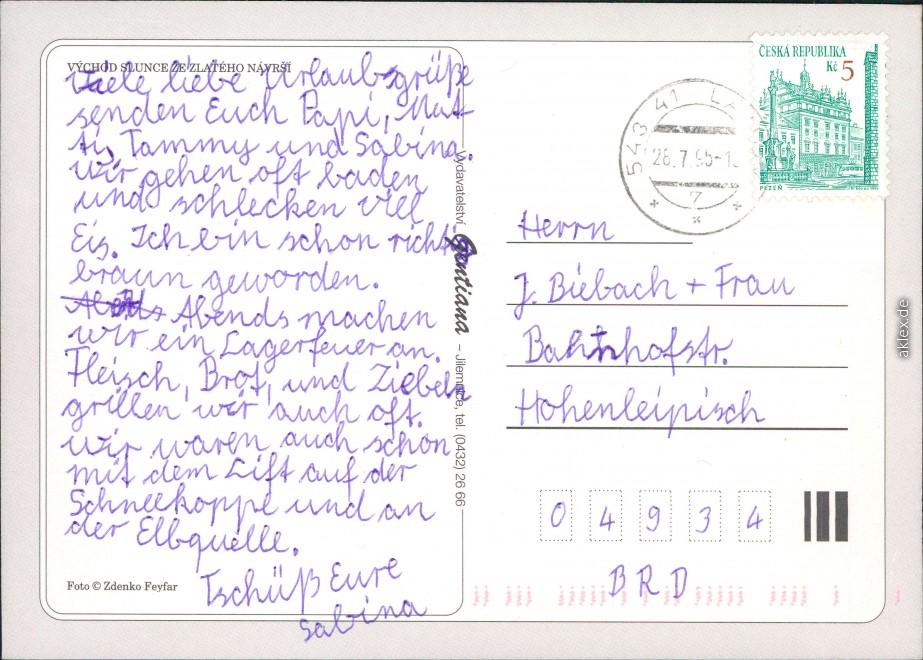 VÝCHOD SLUNCE ZE ZLATÉHO NÁVRŠÍ
Viele liebe Urlaubsgrüße
senden Euch Papi, Mut
ti, Tammy und Sabina.
Wir gehen oft baden
und schlecken viel
Eis. Ich bin schon richtig
braun geworden.
Abends machen
wir ein Lagerfeuer an.
Fleisch, Brot, und Ziebeln
grillen wir auch oft.
Wir waren auch schon
mit dem Lift auf der
Schneekoppe und an
der Elbquelle.
Tschüß Eure
Sabina
Foto © Zdenko Feyfar
Vydavatelství Gentiana – Jilemnice, tel. (0432) 26 66
ČESKÁ REPUBLIKA
Kč 5
PLZEŇ
543 41 LÁ
26.7.95-1
7
Herrn
J. Biebach + Frau
Bahnhofstr.
Hohenleipisch
0 4 9 3 4
BRD
aklex.de